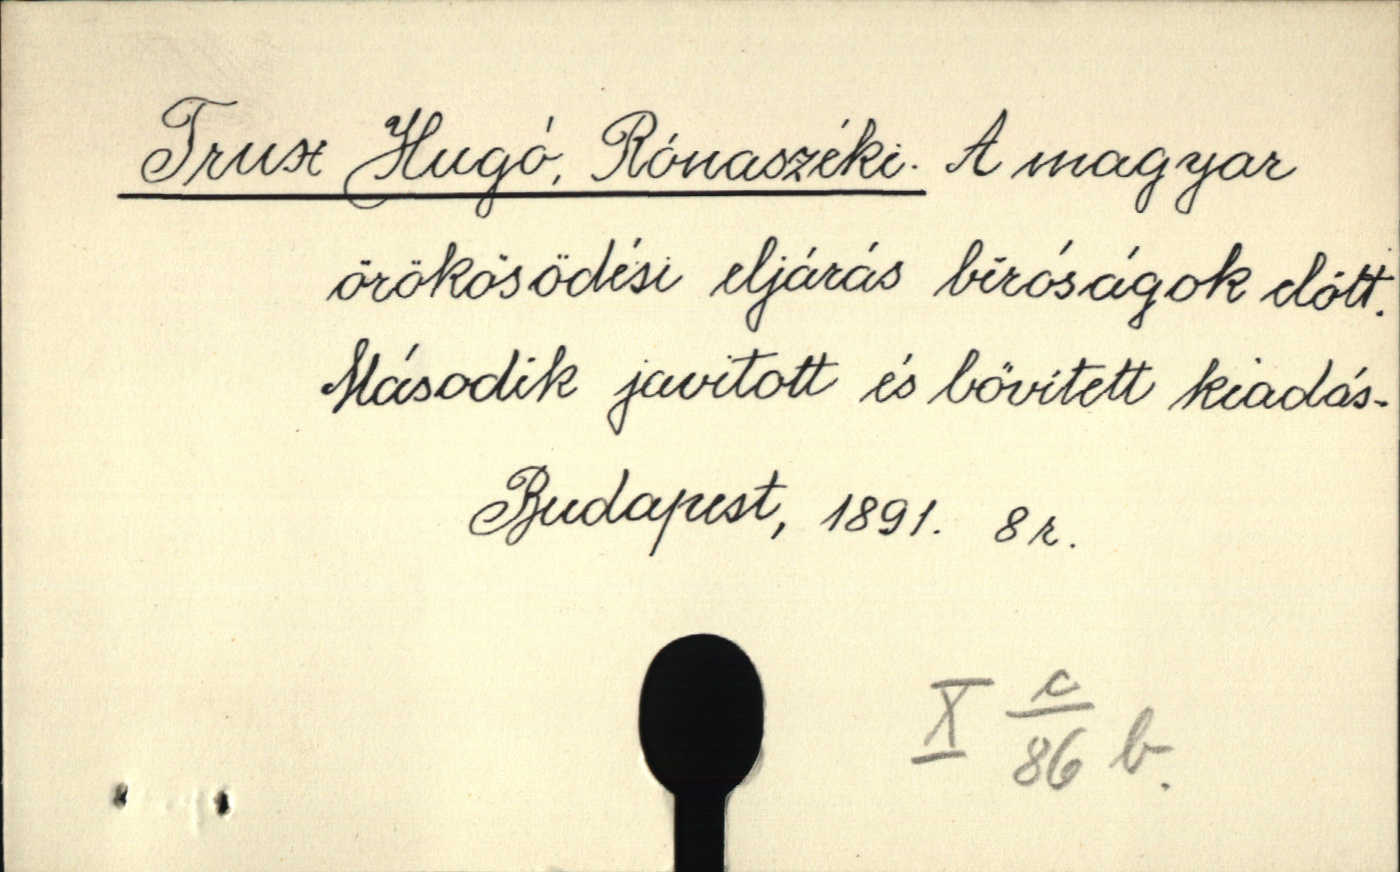 Trux Hugó, Rónaszéki. A magyar
örökösödési eljárás bíróságok előtt.
Második javitott és bővitett kiadás.
Budapest, 1891. 8 r.
X c/86 b.